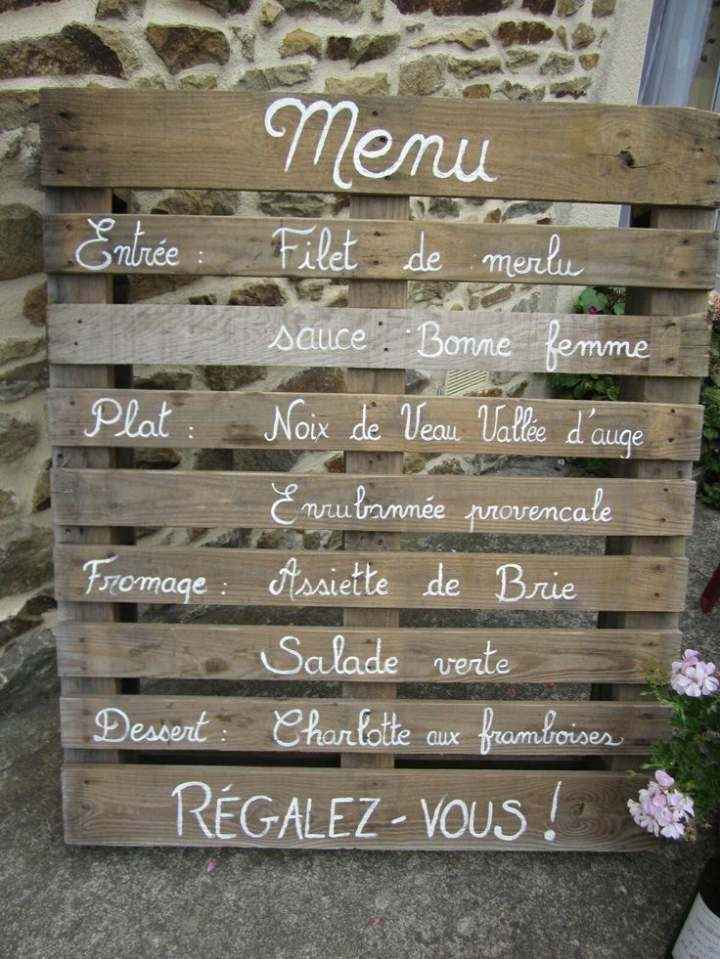 Menu
Entrée : Filet de merlu
sauce Bonne femme
Plat : Noix de Veau Vallée d'auge
Enrubannée provencale
Fromage : Assiette de Brie
Salade verte
Dessert : Charlotte aux framboises
RÉGALEZ-VOUS !